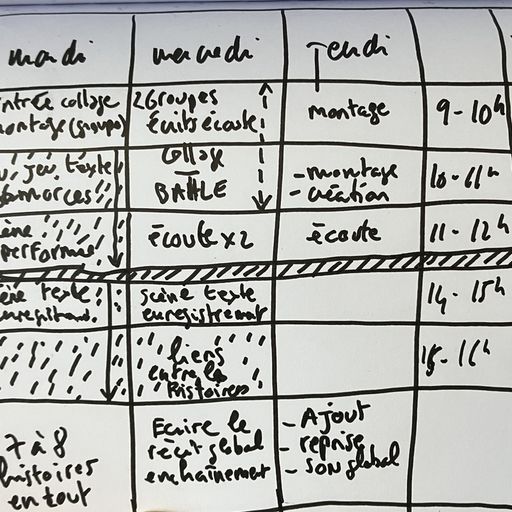 mardi
mercredi
Jeudi
entrée collage
montage (groupe)
2 Groupes
écrits écoute
montage
9-10h
jeu, texte
amorces
collage
BATTLE
- montage
- création
10-11h
performe
écoute x2
écoute
11-12h
texte
enregistrem.
scène texte
enregistrement
14-15h
liens
entre les
histoires
15-16h
7 à 8
histoires
en tout
Ecrire le
récit global
enchaînement
- Ajout
- reprise
- son global